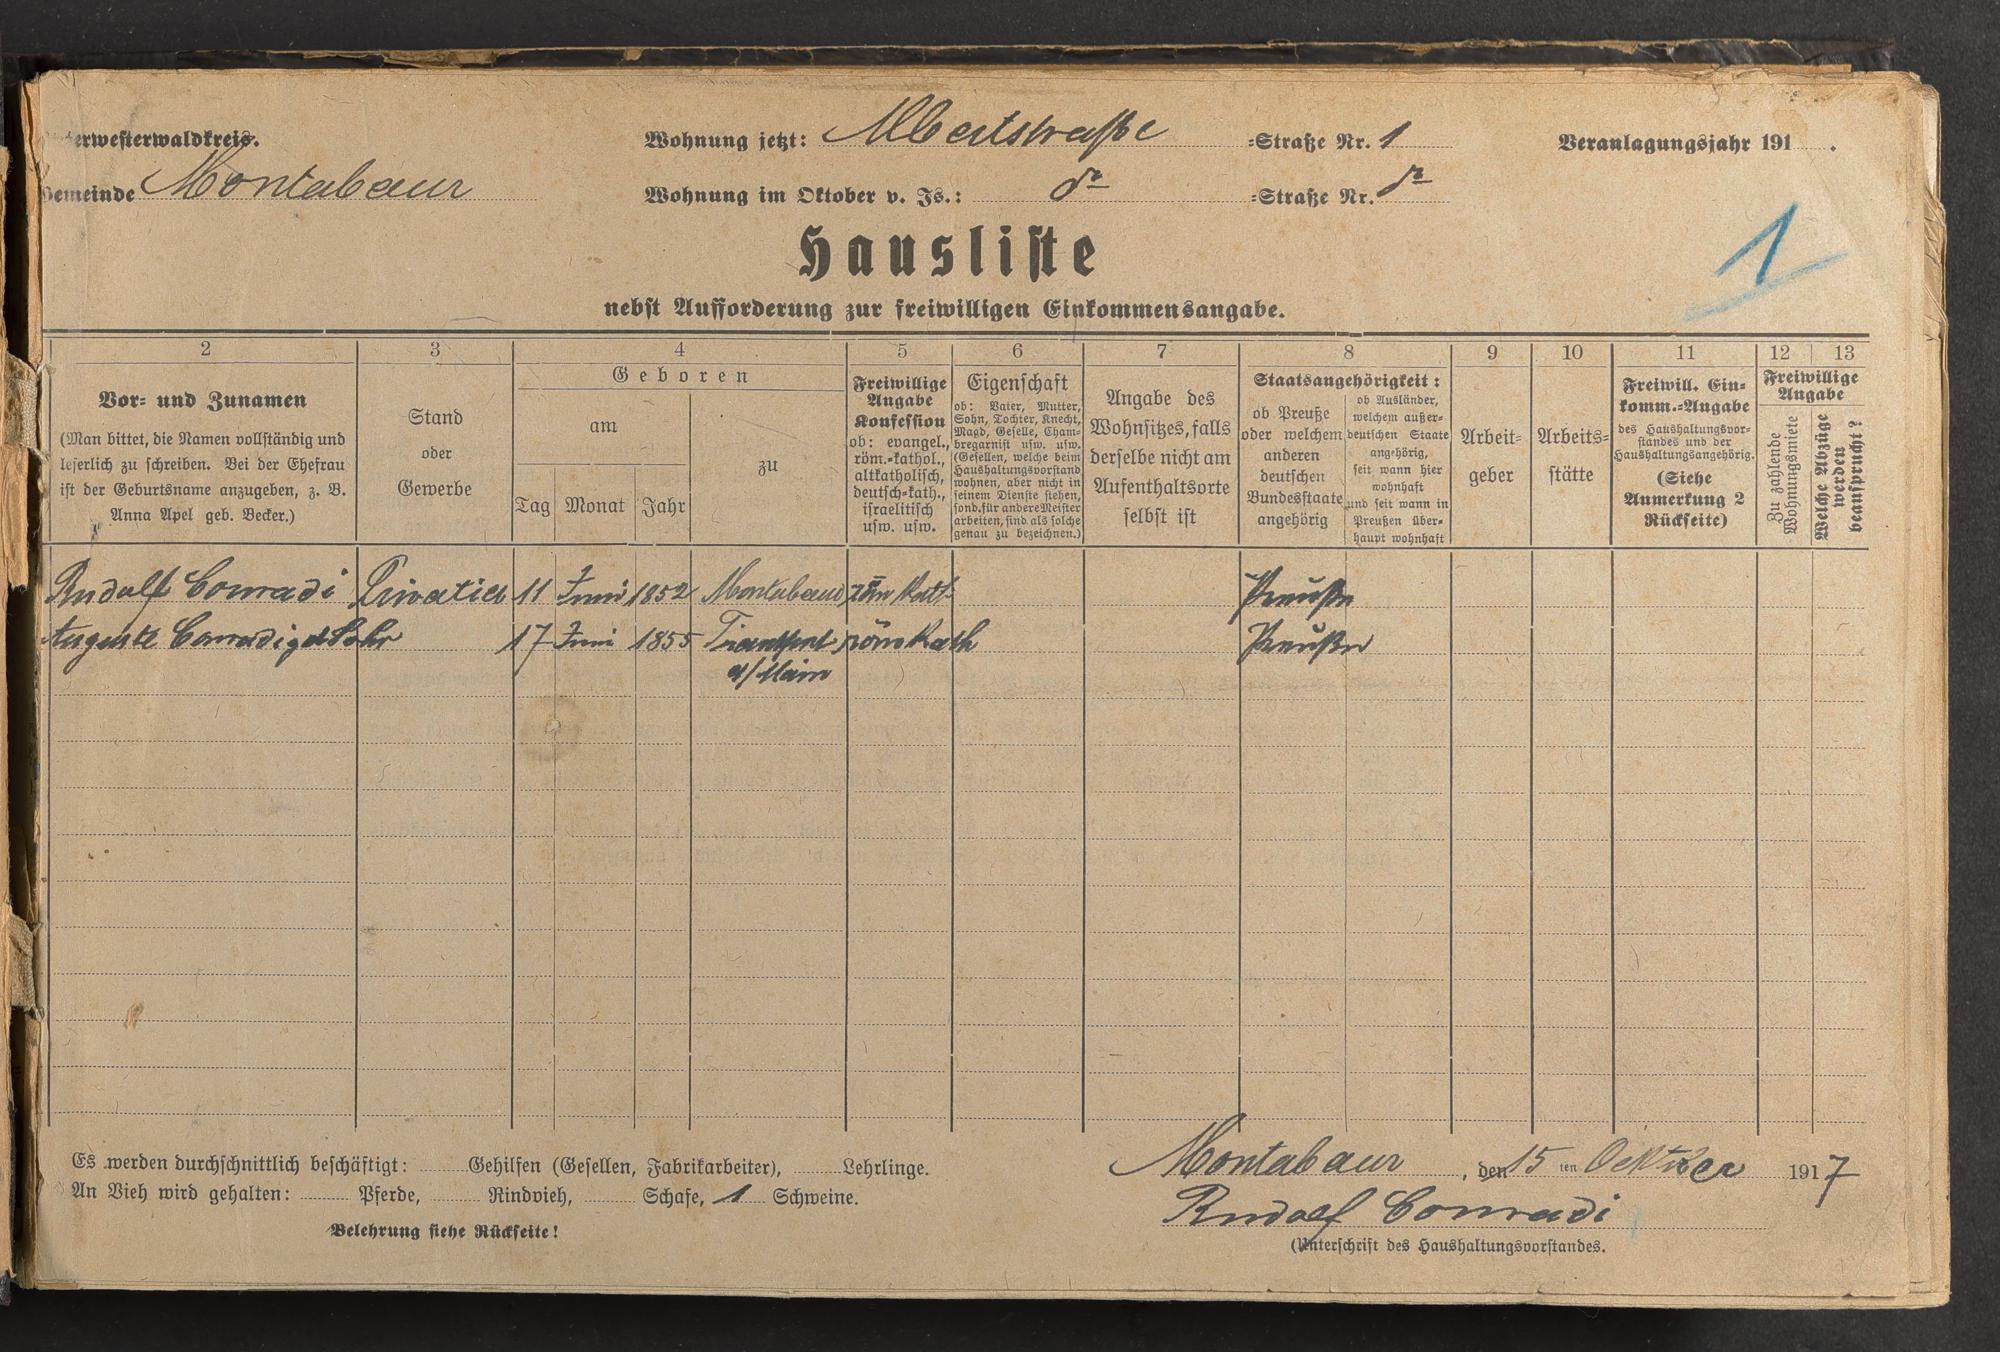 terwesterwaldkreis.
Gemeinde Montabaur
Wohnung jetzt: Albertstraße =Straße Nr. 1
Wohnung im Oktober v. Js.: do =Straße Nr. do
Veranlagungsjahr 191 .
1
Hausliste
nebst Aufforderung zur freiwilligen Einkommensangabe.
2
Vor= und Zunamen
(Man bittet, die Namen vollständig und
leserlich zu schreiben. Bei der Ehefrau
ist der Geburtsname anzugeben, z. B.
Anna Apel geb. Becker.)
3
Stand
oder
Gewerbe
4
Geboren
am
Tag Monat Jahr
zu
5
Freiwillige
Angabe
Konfession
ob: evangel.,
röm.=kathol.,
altkatholisch,
deutsch=kath.,
israelitisch
usw. usw.
6
Eigenschaft
ob: Vater, Mutter,
Sohn, Tochter, Knecht,
Magd, Geselle, Cham=
bregarnist usw. usw.
(Gesellen, welche beim
Haushaltungsvorstand
wohnen, aber nicht in
seinem Dienste stehen,
sond. für andere Meister
arbeiten, sind als solche
genau zu bezeichnen.)
7
Angabe des
Wohnsitzes, falls
derselbe nicht am
Aufenthaltsorte
selbst ist
8
Staatsangehörigkeit:
ob Preuße
oder welchem
anderen
deutschen
Bundesstaate
angehörig
ob Ausländer,
welchem außer=
deutschen Staate
angehörig,
seit wann hier
wohnhaft
und seit wann in
Preußen über=
haupt wohnhaft
9
Arbeit=
geber
10
Arbeits=
stätte
11
Freiwill. Ein=
komm.=Angabe
des Haushaltungsvor=
standes und der
Haushaltungsangehörig.
(Siehe
Anmerkung 2
Rückseite)
12 13
Freiwillige
Angabe
Zu zahlende
Wohnungsmiete
Welche Abzüge
werden
beansprucht?
Rudolf Conradi Privatier 11 Juni 1852 Montabaur röm Kath. Preuße
Auguste Conradi geb Lohr 17 Juni 1855 Frankfurt röm Kath Preuße
a/Main
Es werden durchschnittlich beschäftigt: Gehilfen (Gesellen, Fabrikarbeiter), Lehrlinge.
An Vieh wird gehalten: Pferde, Rindvieh, Schafe, 1 Schweine.
Belehrung siehe Rückseite!
Montabaur, den 15 ten Oktober 1917
Rudolf Conradi
(Unterschrift des Haushaltungsvorstandes.